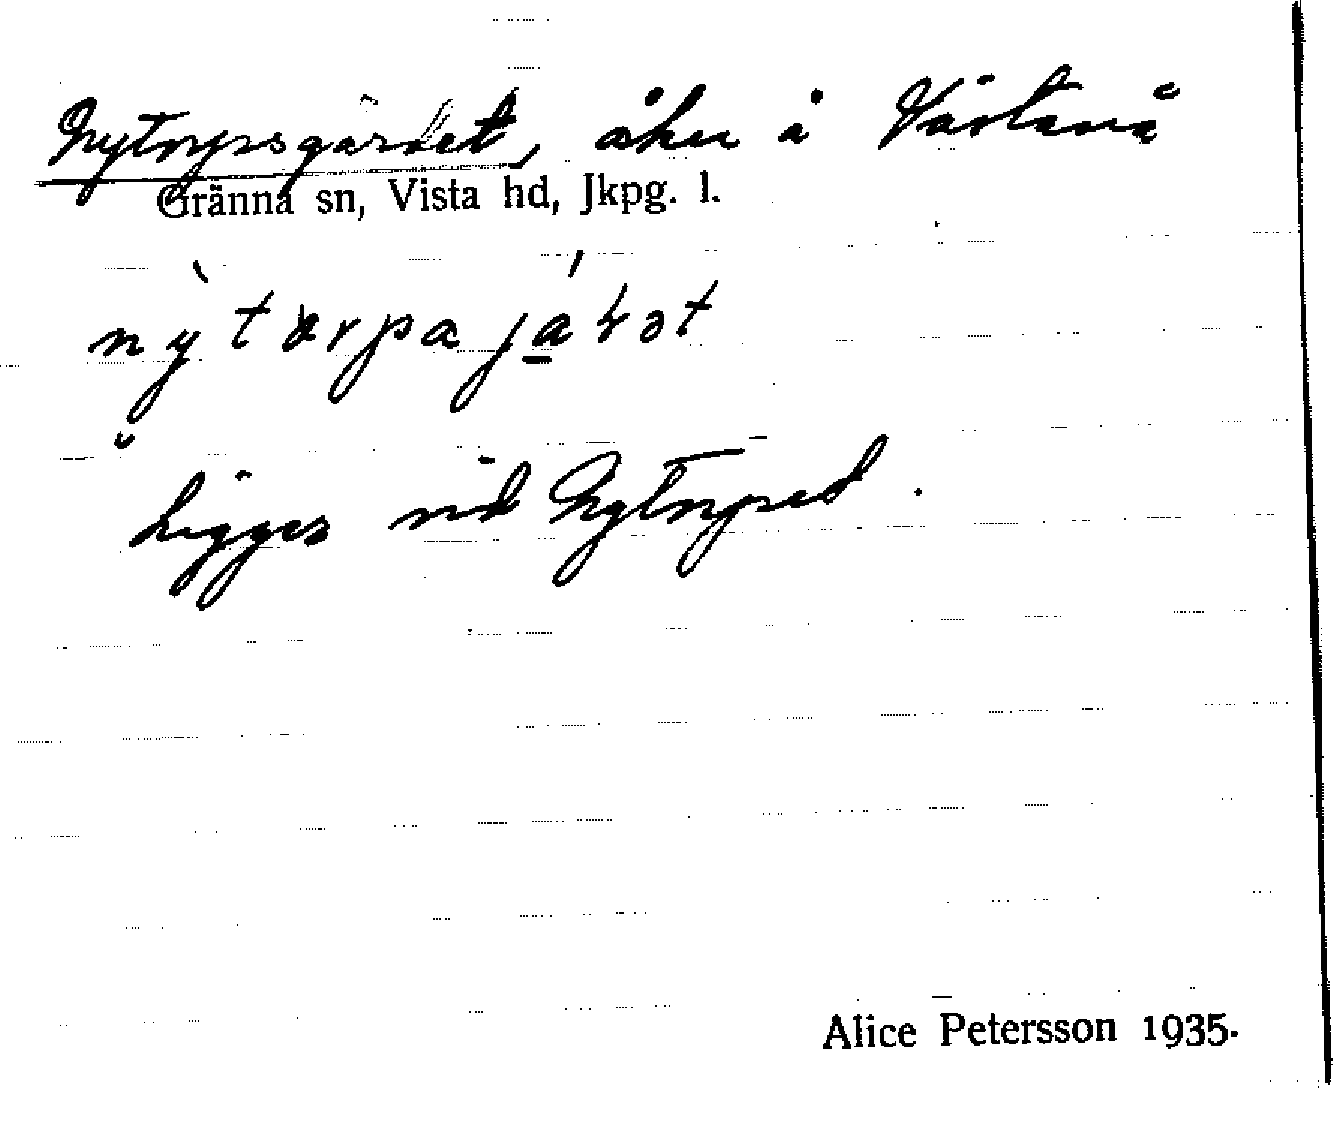 Nytorpsgärdet, åker å Västanå
Gränna sn, Vista hd, Jkpg. l.
Ligger vid Nytorpet.
Alice Petersson 1935.